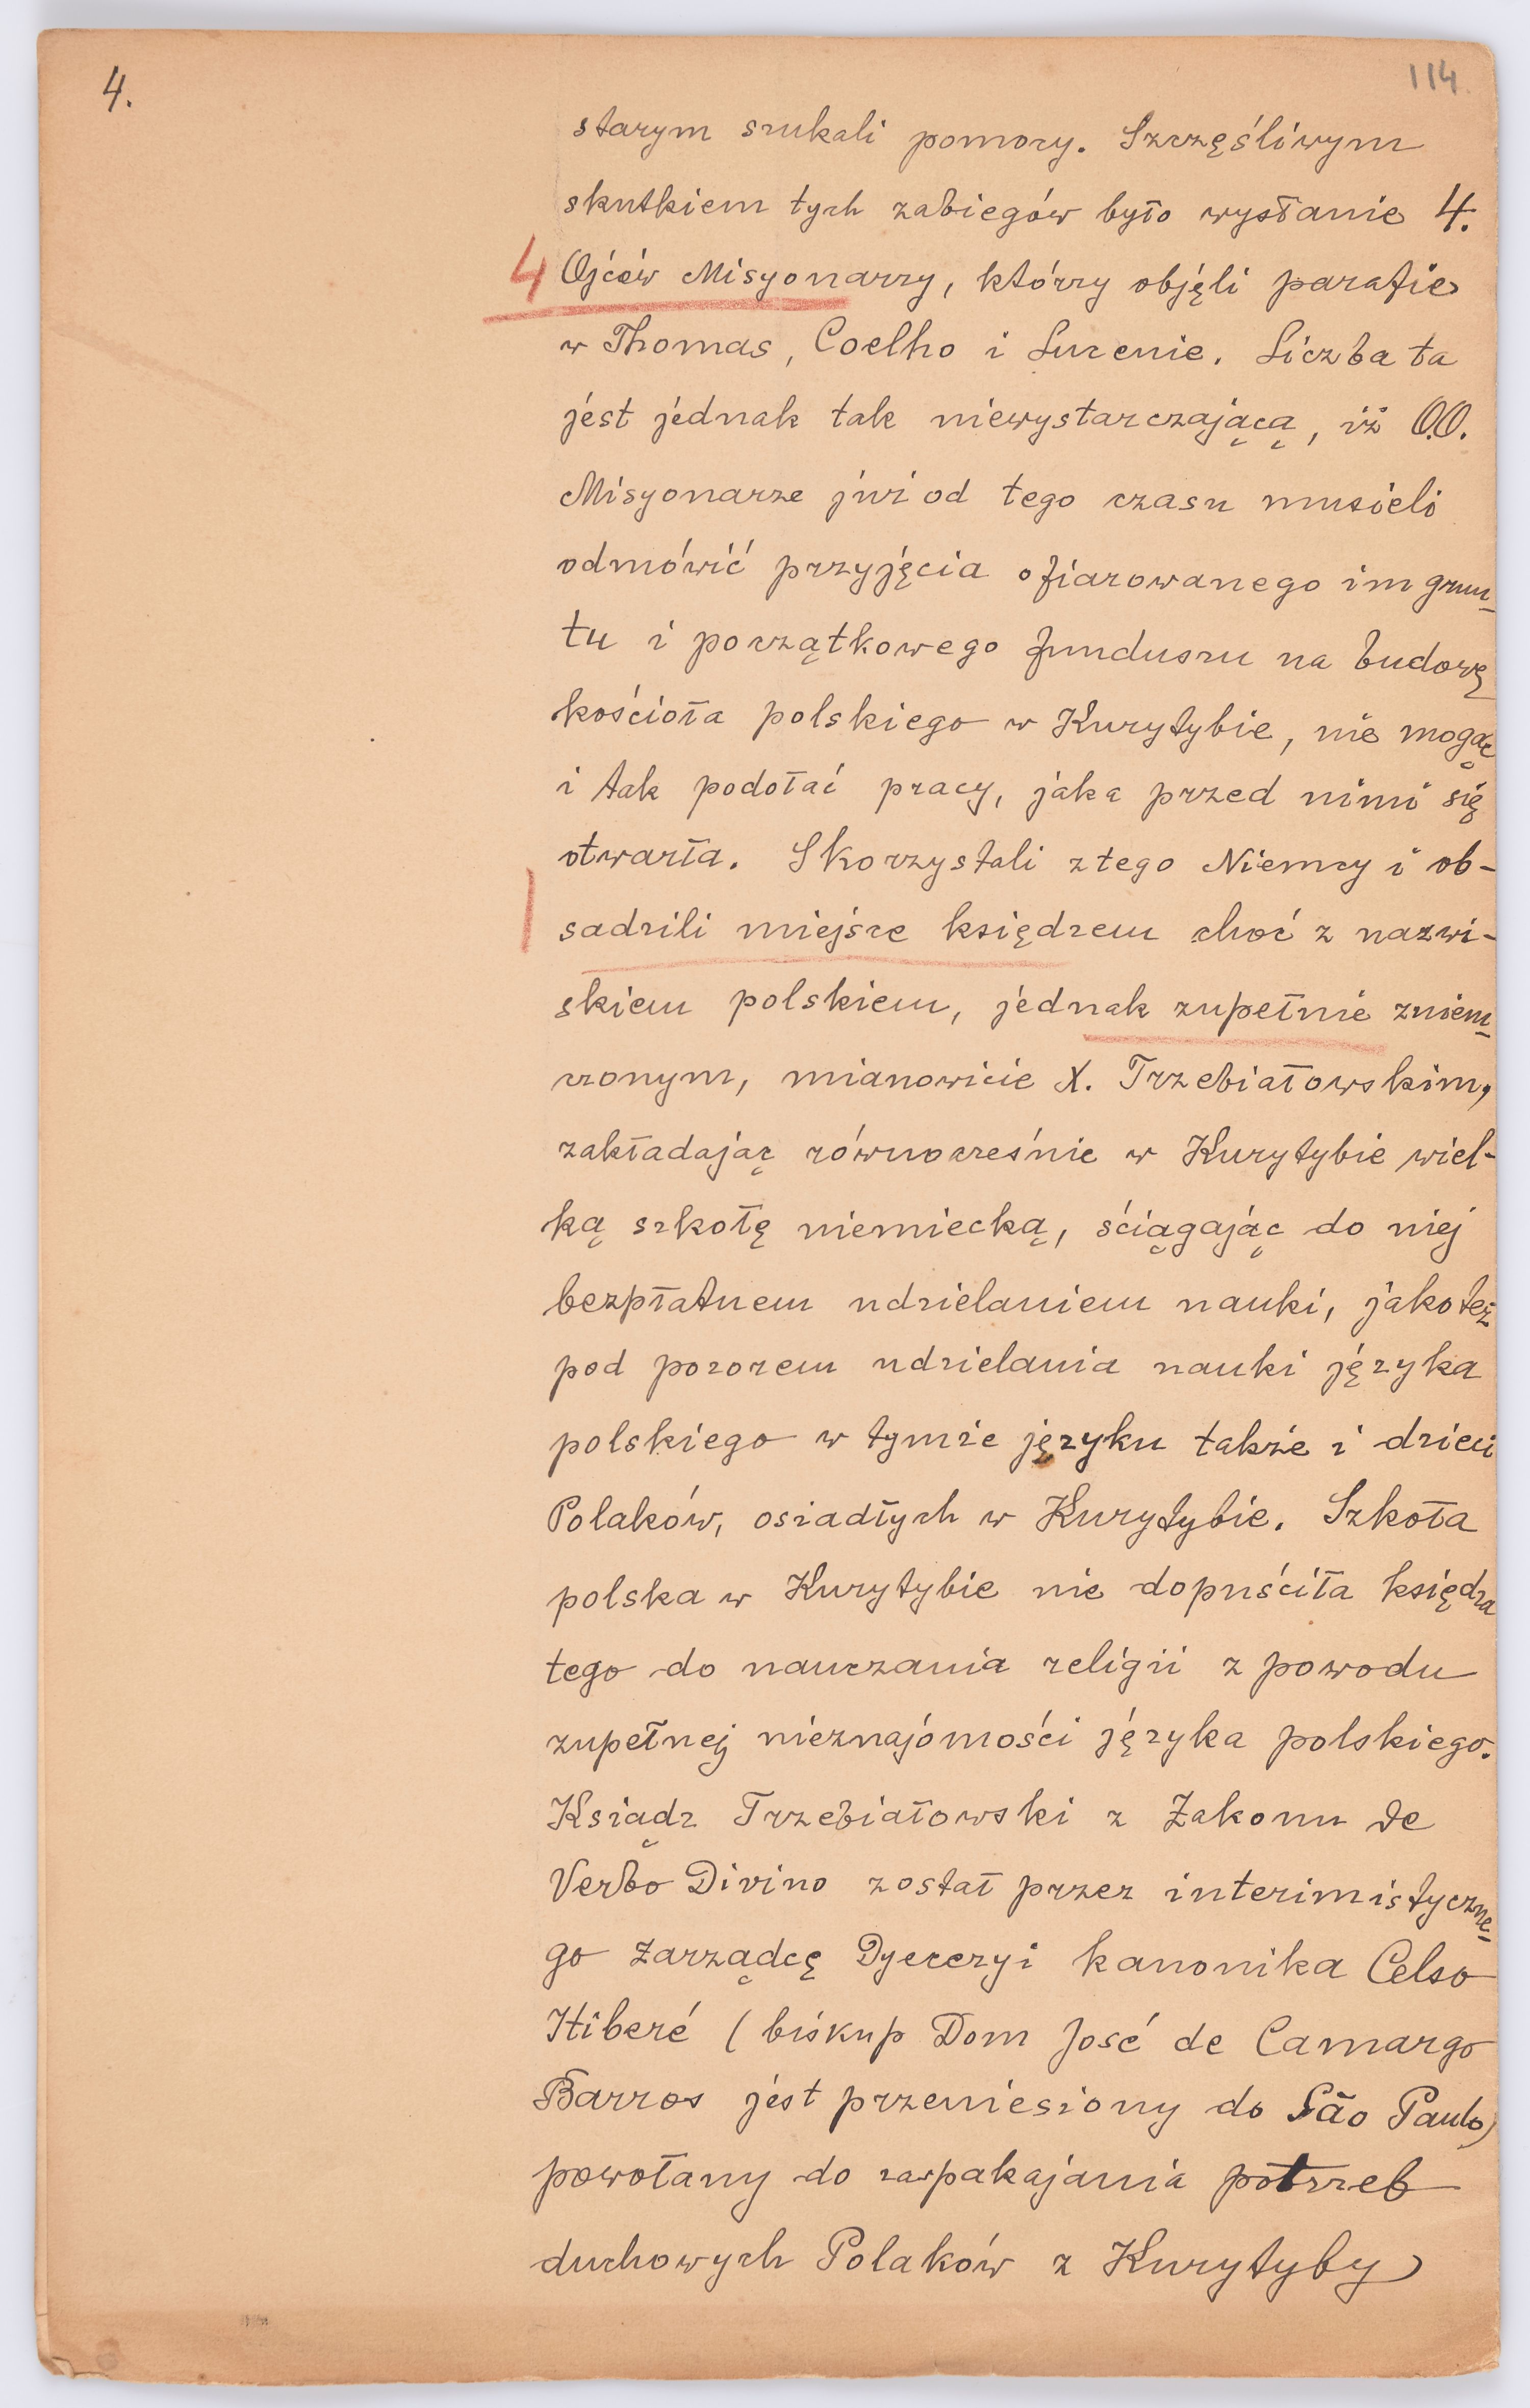 4.
114
starym szukali pomocy. Szczęśliwym
skutkiem tych zabiegów było wysłanie 4.
4 Ojców Misyonarzy, którzy objęli parafie
w Thomas, Coelho i Lucenie. Liczba ta
jest jednak tak niewystarczającą, iż O.O.
Misyonarze już od tego czasu musieli
odmówić przyjęcia ofiarowanego im grun-
tu i początkowego funduszu na budowę
kościoła polskiego w Kurytybie, nie mogąc
i tak podołać pracy, jaka przed nimi się
otwarła. Skorzystali z tego Niemcy i ob-
sadzili miejsce księdzem choć z nazwi-
skiem polskiem, jednak zupełnie zniem-
czonym, mianowicie X. Trzebiatowskim,
zakładając równocześnie w Kurytybie wiel-
ką szkołę niemiecką, ściągając do niej
bezpłatnem udzielaniem nauki, jakoteż
pod pozorem udzielania nauki języka
polskiego w tymże języku także i dzieci
Polaków, osiadłych w Kurytybie. Szkoła
polska w Kurytybie nie dopuściła księdza
tego do nauczania religii z powodu
zupełnej nieznajómości języka polskiego.
Ksiądz Trzebiatowski z Zakonu de
Verbo Divino został przez interimistyczne-
go Zarządcę Dyecezyi kanonika Celso
Itiberé (biskup Dom José de Camargo
Barros jest przeniesiony do São Paulo)
powołany do zaspakajania potrzeb
duchowych Polaków z Kurytyby